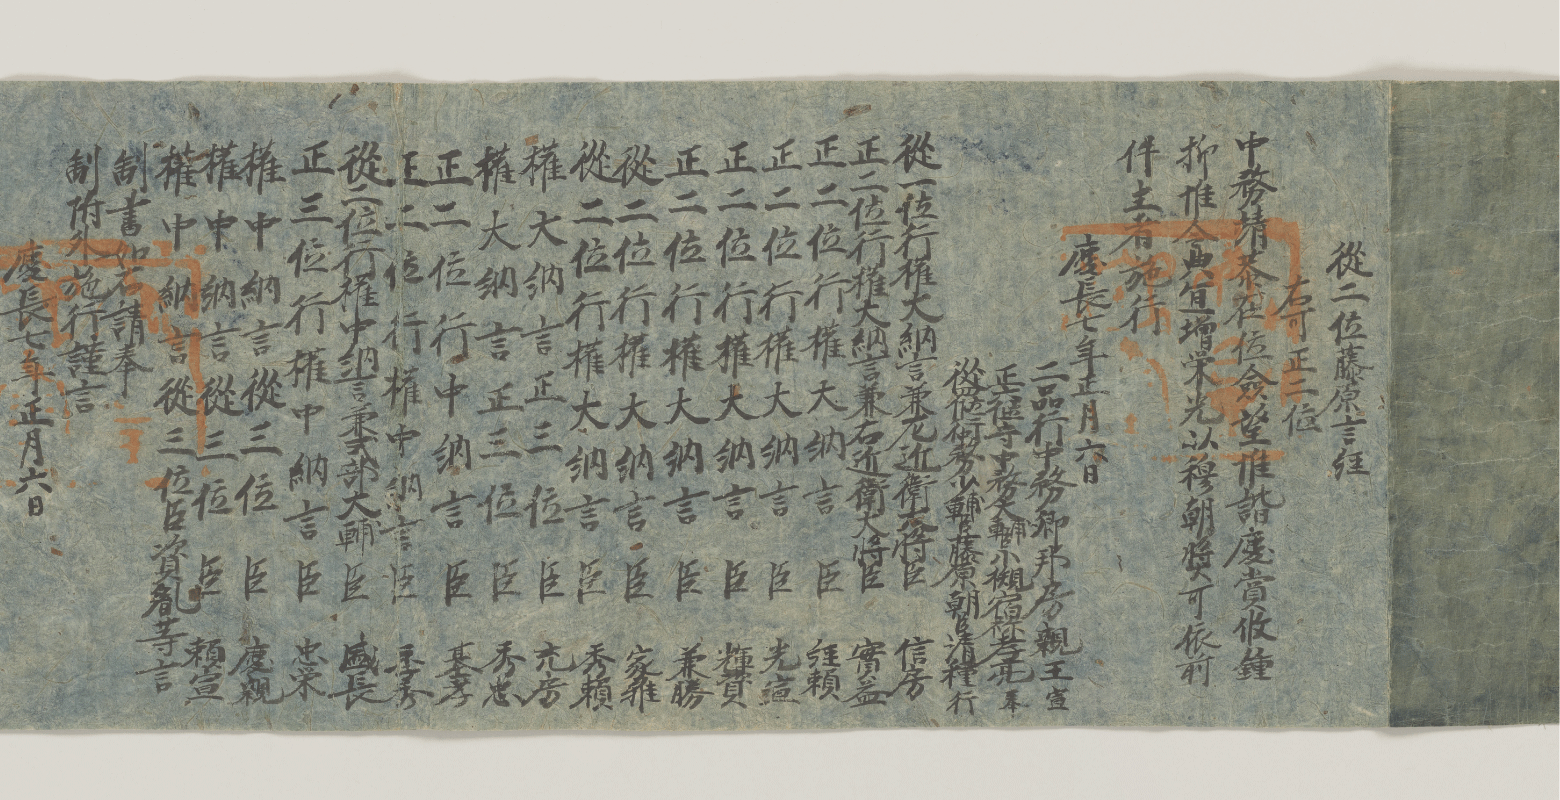 從二位藤原言経
右可正二位
中務靖恭在位僉望惟諧慶賞攸鍾
抑惟令典宜增栄光以穆朝獎可依前
件主者施行
慶長七年正月六日
二品行中務卿邦房親王宣
正位守中務大輔小槻宿祢孝亮奉
從位行中務少輔臣藤原朝臣清種行
從一位行權大納言兼左近衛大將臣信房
正二位行權大納言兼右近衛大將臣實益
正二位行權大納言臣経頼
正二位行權大納言臣光宣
正二位行權大納言臣輝資
正二位行權大納言臣兼勝
從二位行權大納言臣家雅
從二位行權大納言臣秀頼
權大納言正三位臣元房
權大納言正三位臣秀忠
正二位行中納言臣基孝
正二位行權中納言臣
從二位行權中納言兼式部大輔臣盛長
正三位行權中納言臣忠栄
權中納言從三位臣慶親
權中納言從三位臣頼宣
權中納言從三位臣資胤等言
制書如右請奉
制附外施行謹言
慶長七年正月六日